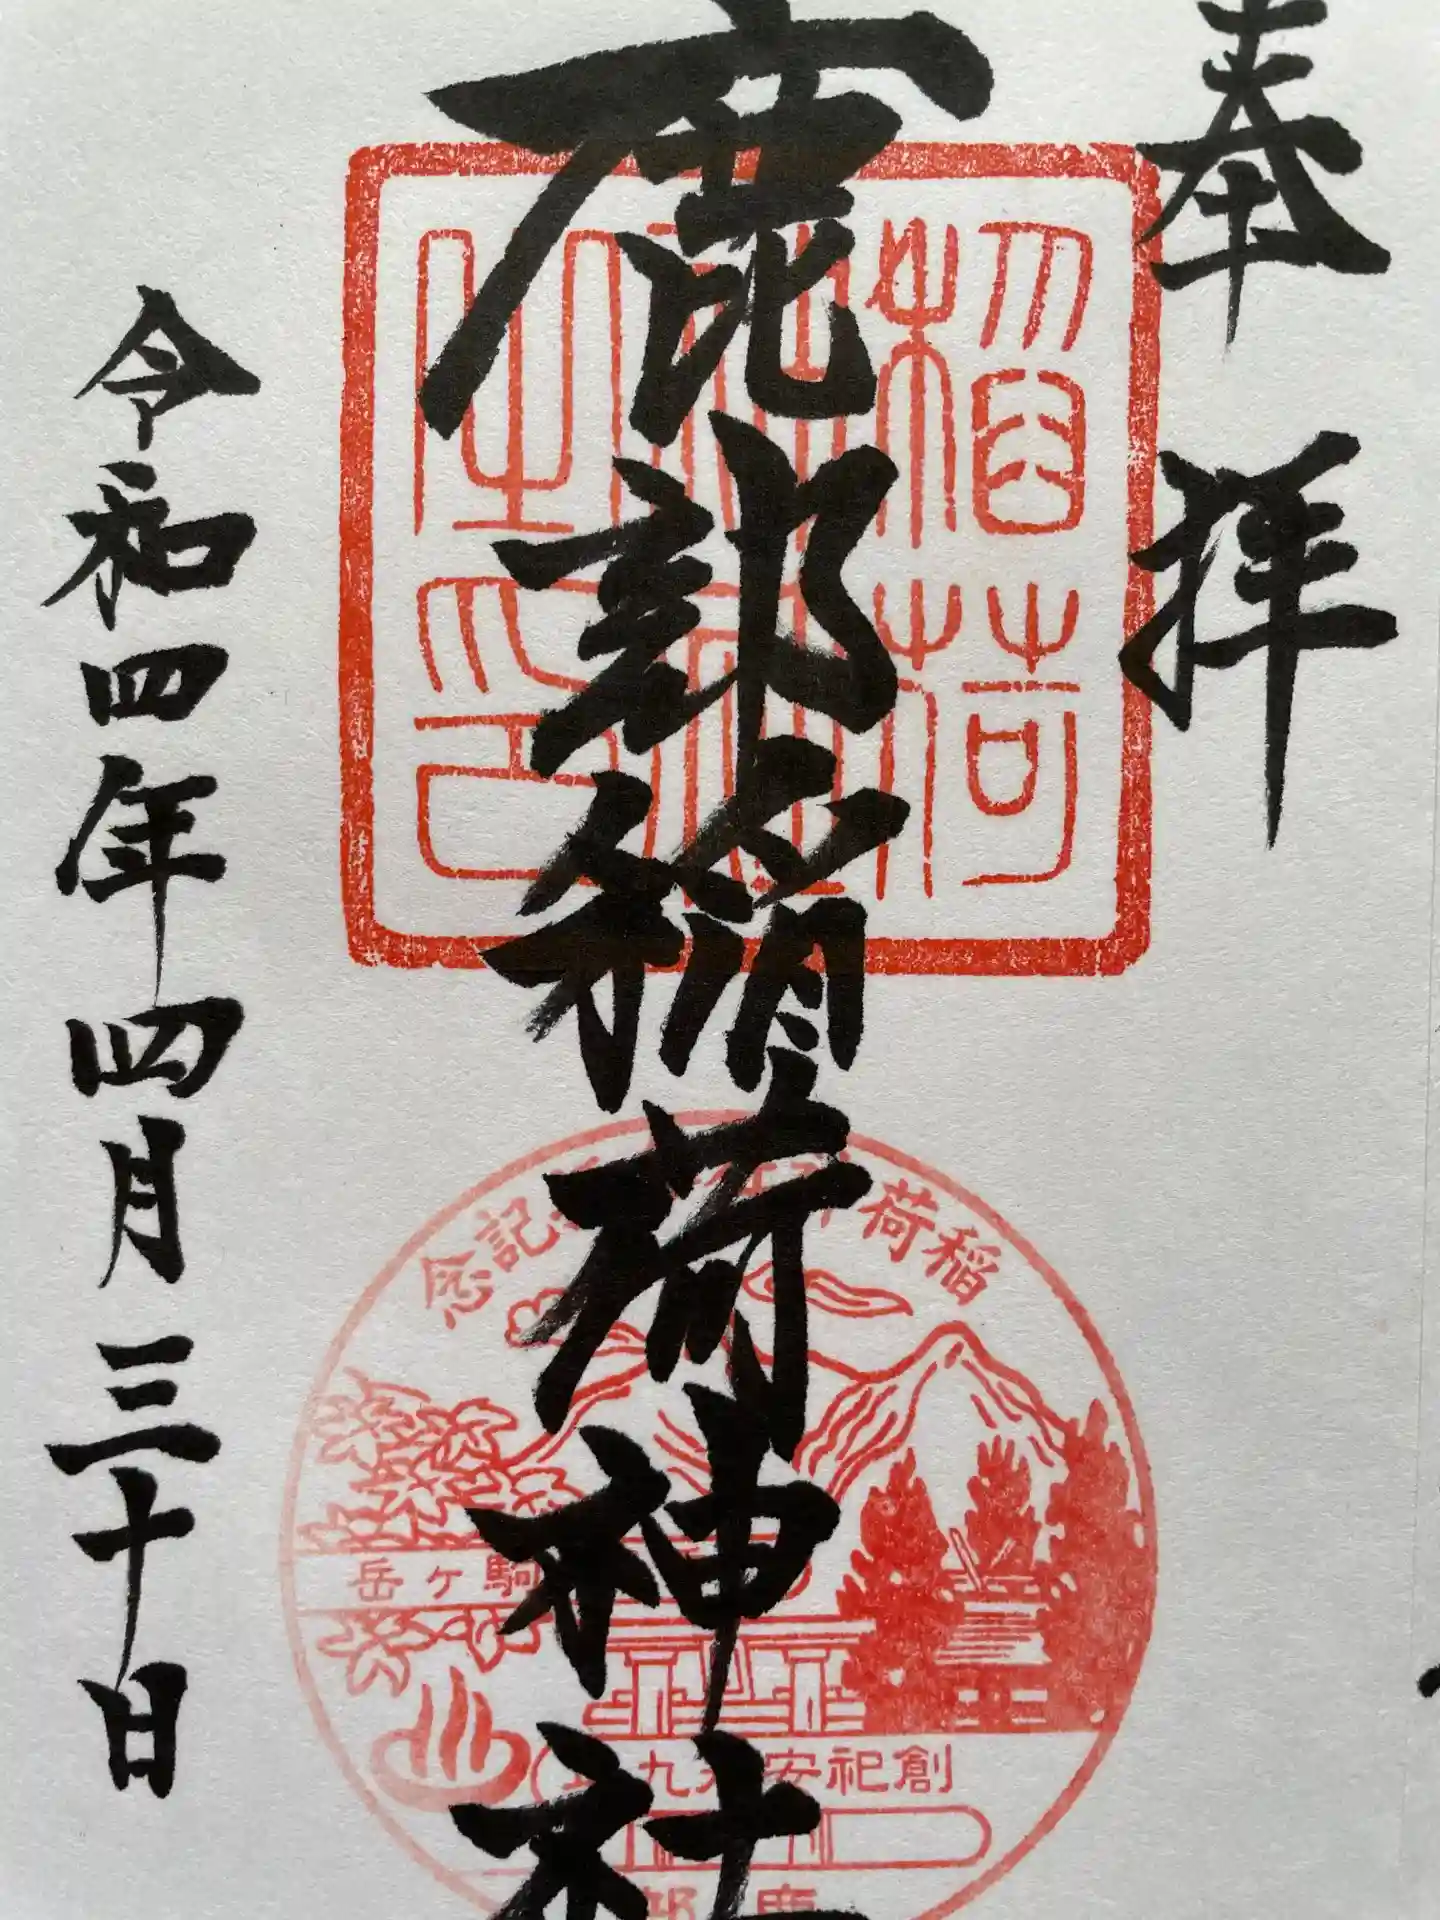 奉拝
鹿部稲荷神社
令和四年四月三十日
稲荷
印
稲荷
記念
駒ヶ岳
創祀安
九
鹿部